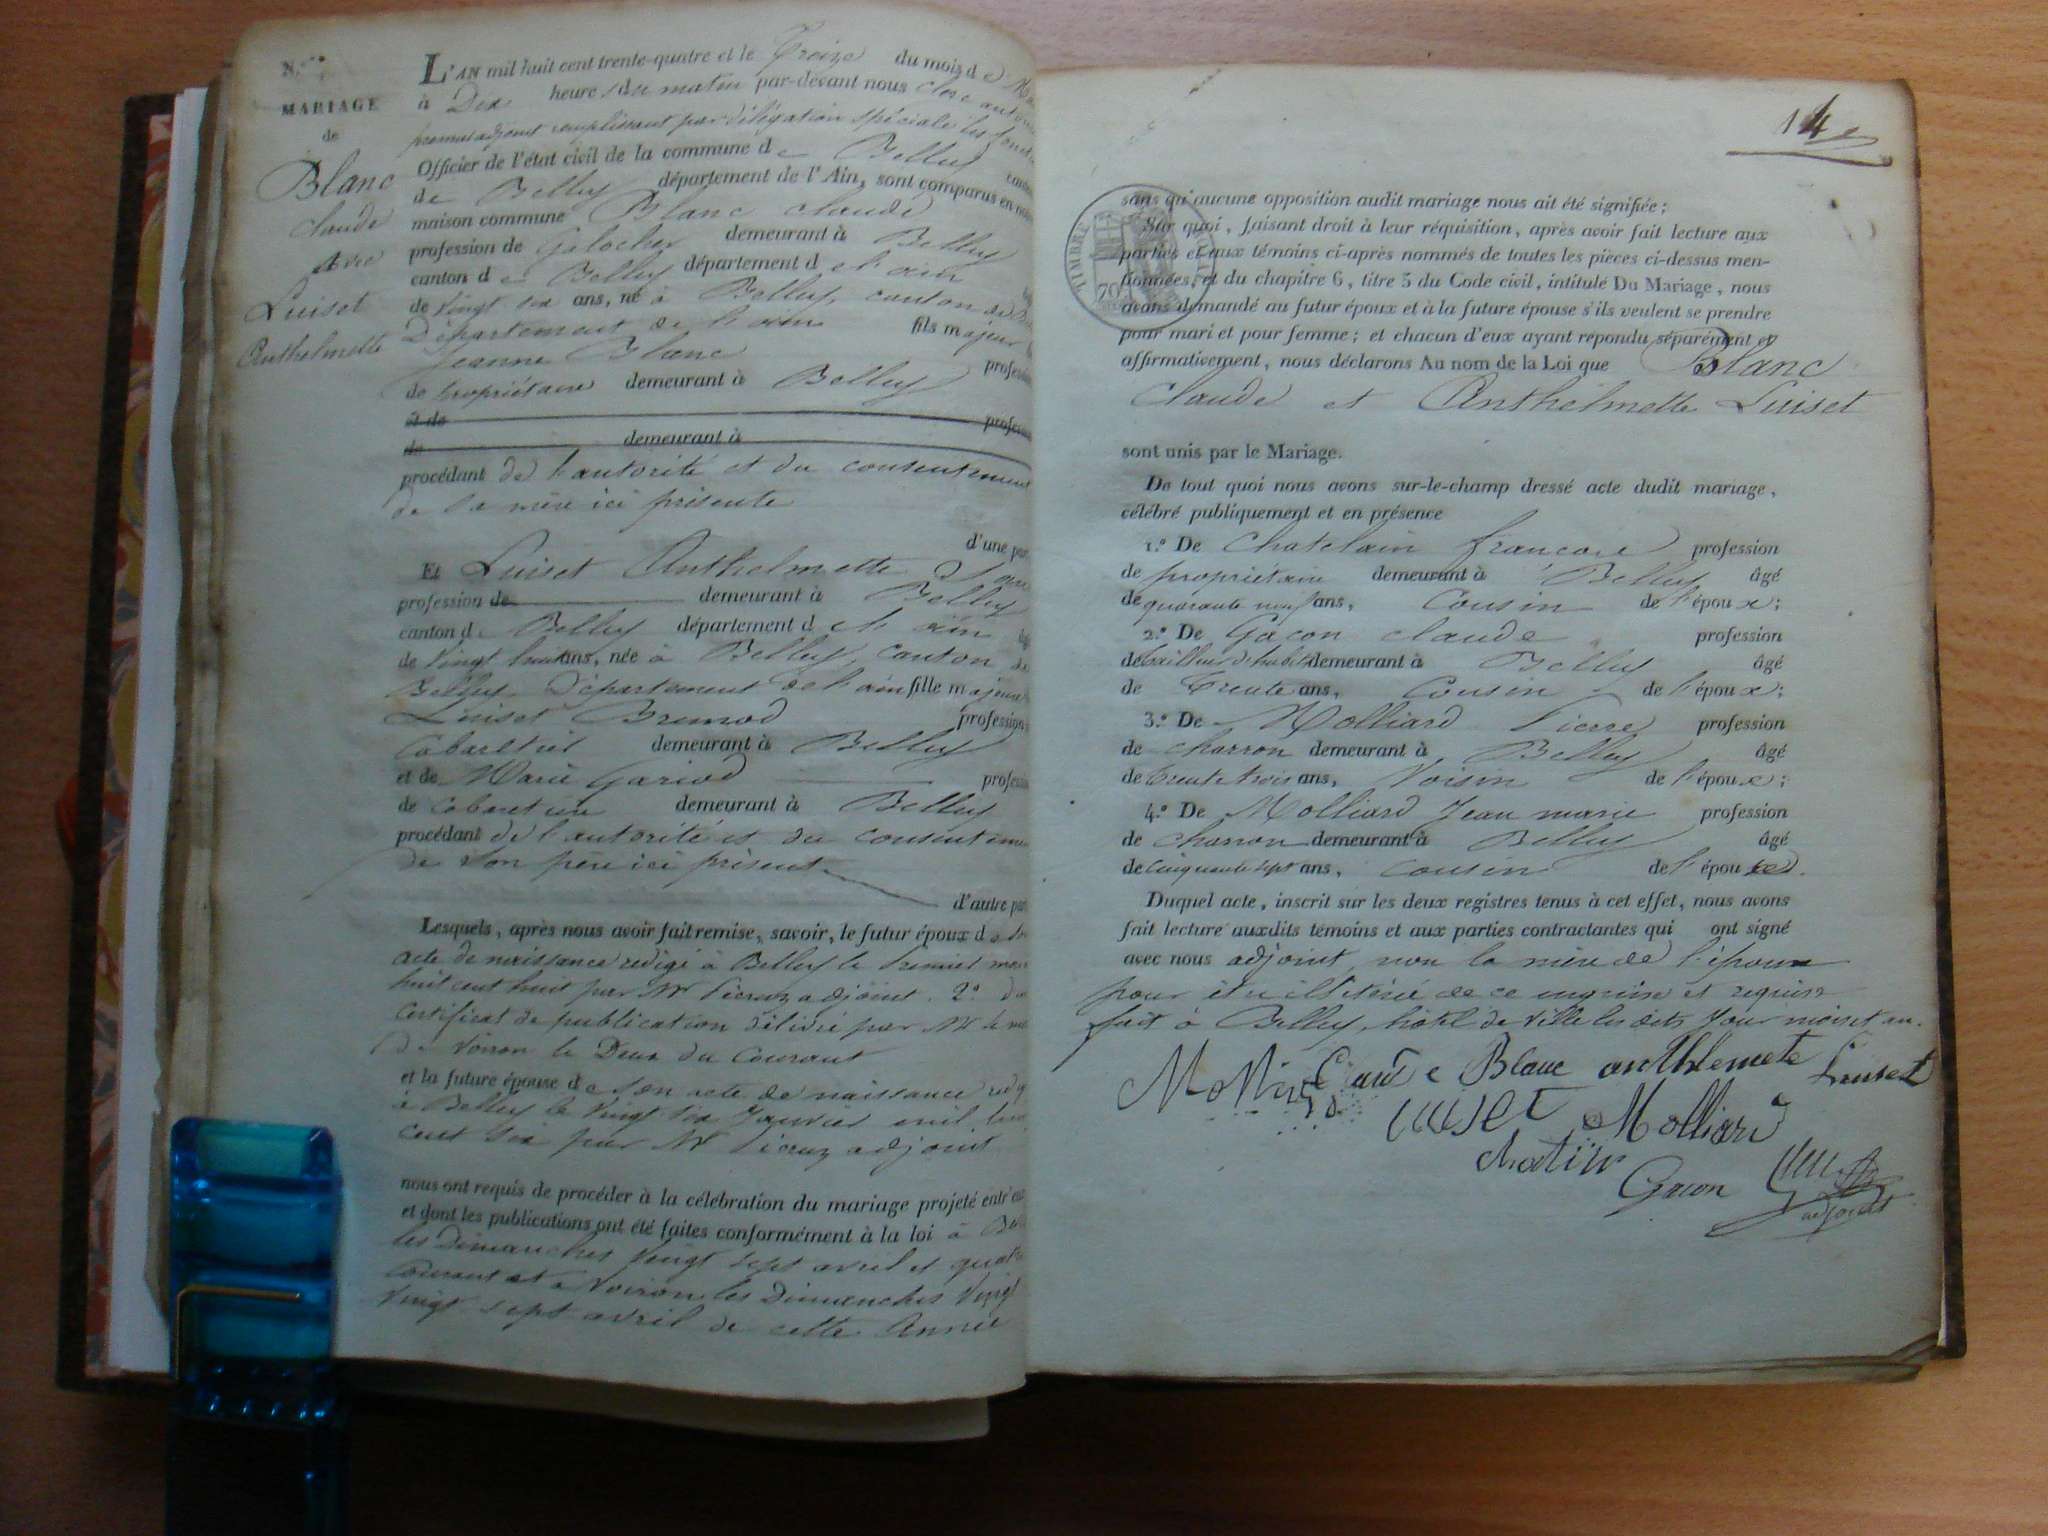 N.
MARIAGE
de
Blanc
claude
avec
Luiset
Anthelmette
L'AN mil huit cent trente-quatre et le Treize du mois de
à Dix heures du matin par-devant nous clerc antoine
premier adjoint remplissant par délégation spéciale les fonct
Officier de l'état civil de la commune de Belley canton
de Belley département de l'Ain, sont comparus en notre
maison commune Blanc claude
profession de demeurant à Belley
canton de Belley département de l'ain
de vingt six ans, né à Belley, canton de
Département de l'ain fils majeur
Jeanne Blanc profession
de propriétaire demeurant à Belley
et de profession
de demeurant à
procédant de l'autorité et du consentement
de la mère ici présente
d'une part
Et Luiset Anthelmette
profession de demeurant à Belley
canton de Belley département de l'ain
de vingt huit ans, née à Belley, canton de
Belley Département de l'ain fille majeure
Luiset Brunod profession
Cabaretier demeurant à Belley
et de Marie Gariod profession
de Cabaretière demeurant à Belley
procédant de l'autorité et du consentement
de son père ici présent
d'autre part
Lesquels, après nous avoir fait remise, savoir, le futur époux de son
acte de naissance rédigé à Belley le Premier
huit cent huit par Mr adjoint. 2° du
Certificat de publication délivré par Mr le
de Voiron le Deux du Courant
et la future épouse de son acte de naissance
à Belley le vingt six Janvier mil huit
cent six par Mr adjoint
nous ont requis de procéder à la célébration du mariage projeté entr'eux
et dont les publications ont été faites conformément à la loi à
les Dimanches vingt sept avril et quatre
Courant et à Voiron les Dimanches Vingt
Vingt sept avril de cette Année
14e
TIMBRE ROYAL
70
sans qu'aucune opposition audit mariage nous ait été signifiée;
Sur quoi, faisant droit à leur réquisition, après avoir fait lecture aux
parties et aux témoins ci-après nommés de toutes les pièces ci-dessus men-
tionnées, et du chapitre 6, titre 5 du Code civil, intitulé Du Mariage, nous
avons demandé au futur époux et à la future épouse s'ils veulent se prendre
pour mari et pour femme; et chacun d'eux ayant répondu séparément et
affirmativement, nous déclarons Au nom de la Loi que Blanc
Claude et Anthelmette Luiset
sont unis par le Mariage.
De tout quoi nous avons sur-le-champ dressé acte dudit mariage,
célébré publiquement et en présence
1.° De Chatelain françois profession
de propriétaire demeurant à Belley âgé
de quarante neuf ans, Cousin de l'époux;
2.° De Gacon claude profession
de tailleur d'habits demeurant à Belley âgé
de Trente ans, Cousin de l'époux;
3.° De Molliard Pierre profession
de charron demeurant à Belley âgé
de trente trois ans, Voisin de l'époux;
4.° De Molliard Jean marie profession
de charron demeurant à Belley âgé
de cinquante sept ans, cousin de l'époux.
Duquel acte, inscrit sur les deux registres tenus à cet effet, nous avons
fait lecture auxdits témoins et aux parties contractantes qui ont signé
avec nous adjoint non la mère de l'époux
pour être illitérée de ce enquise et requise
fait à Belley, hôtel de Ville les dits Jour mois et an.
Molliard Claude Blanc anthlemete Luiset
Luiset Molliard
Gacon
adjoint